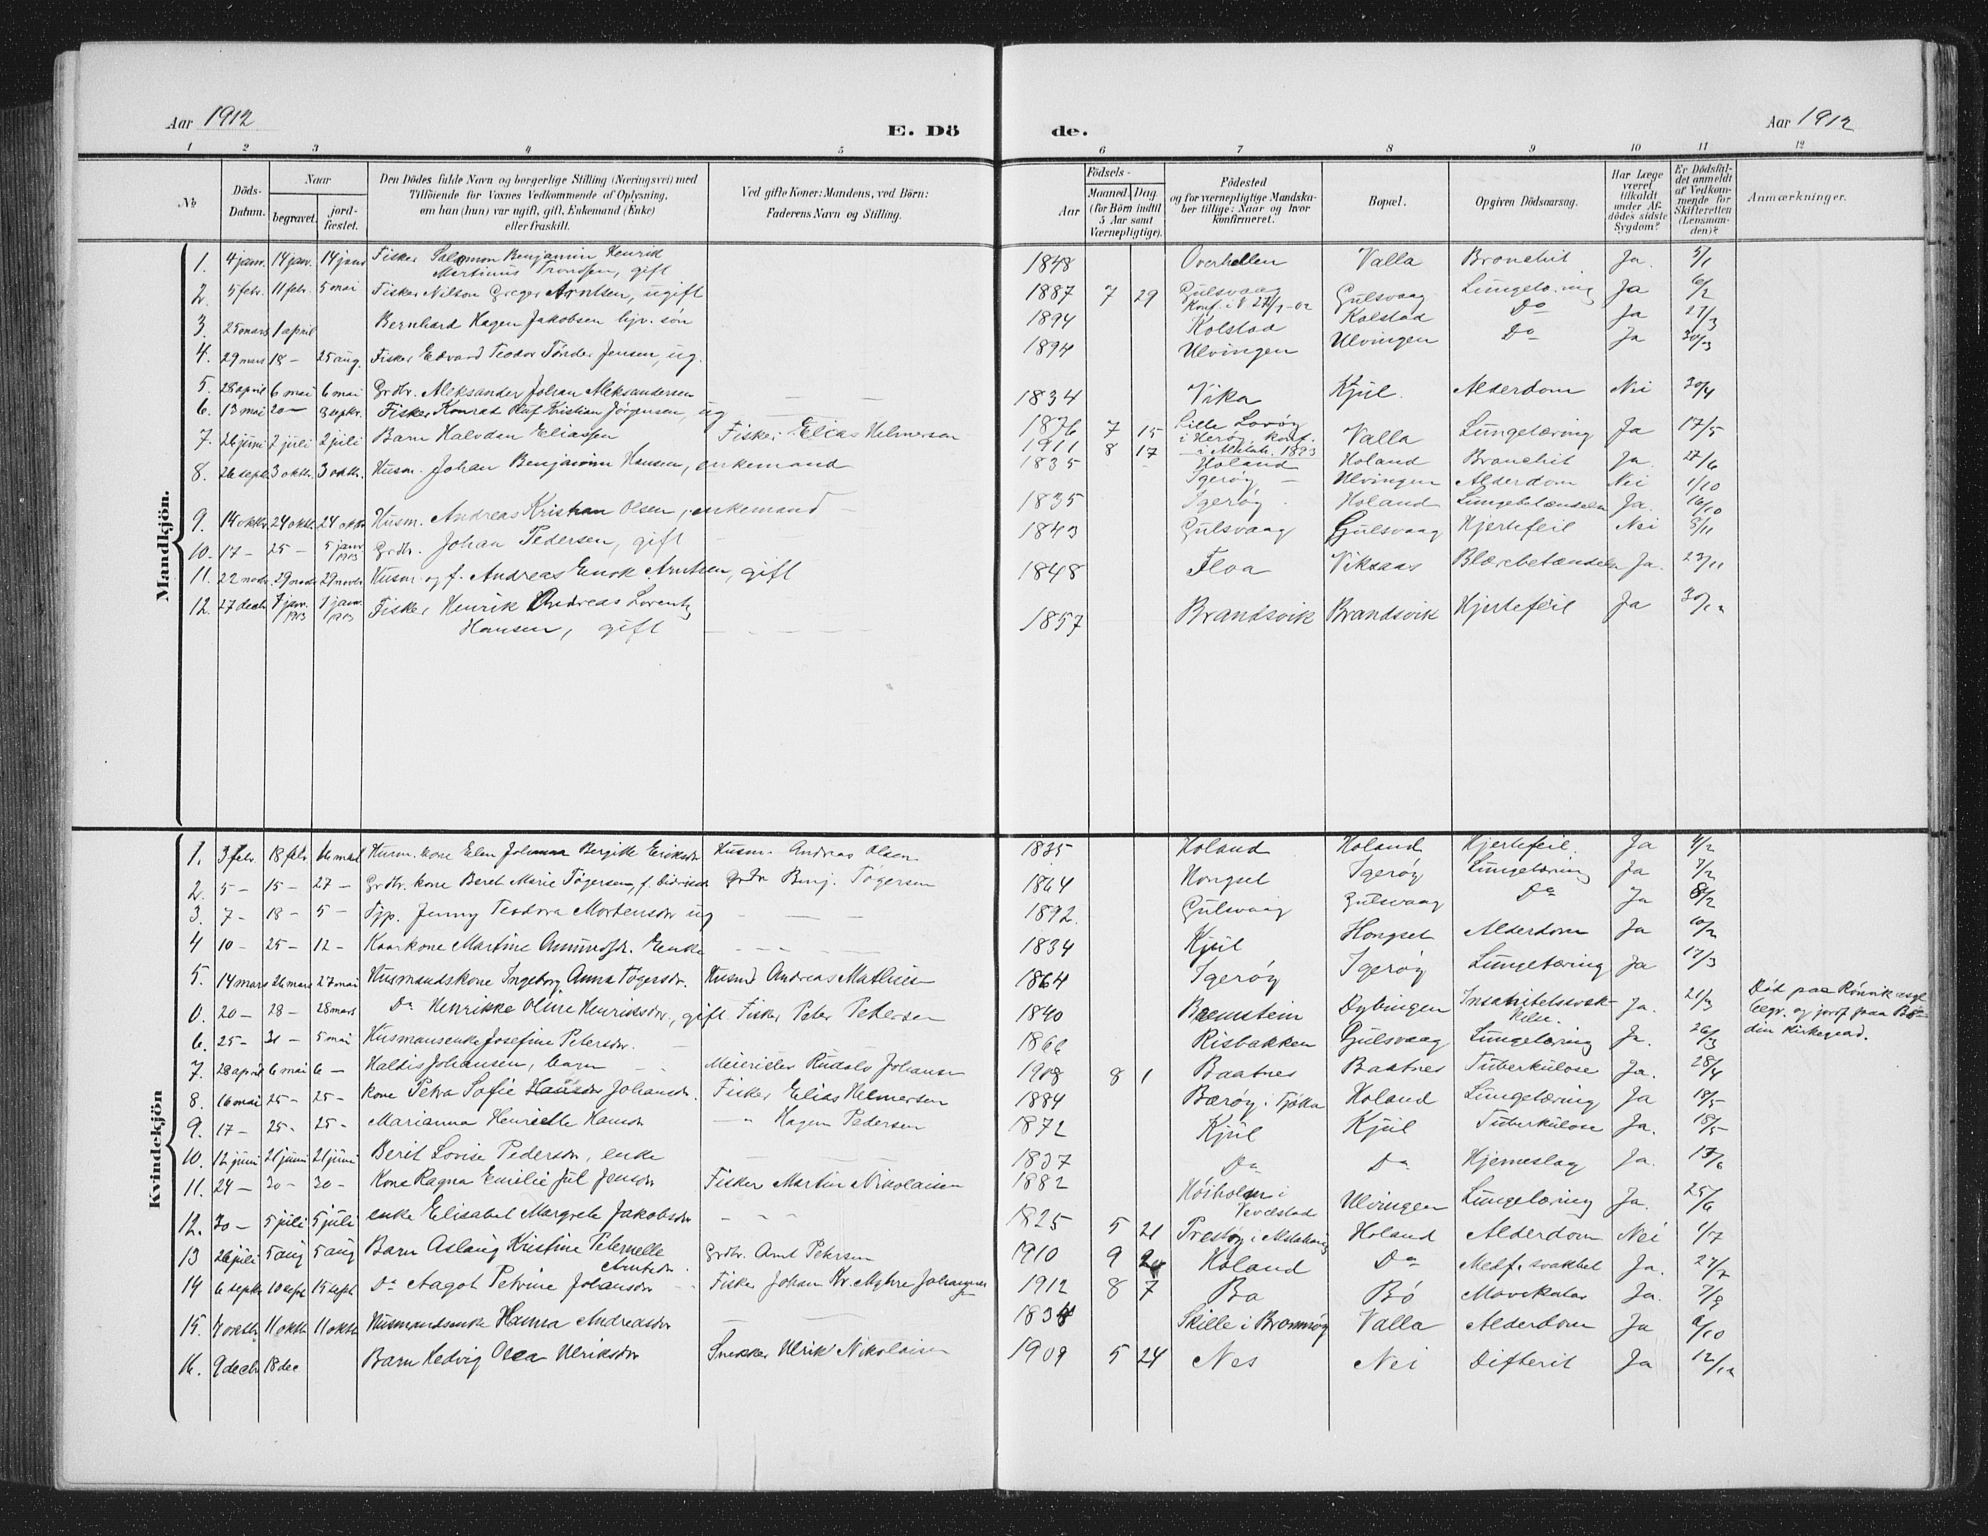 Aar 1912
E. Dö
de.
Aar 1912
1 2 3 4 5 6 7 8 9 10 11 12
No
Döds-Datum.
Naar
begravet.
jord-fæstet.
Den Dödes fulde Navn og borgerlige Stilling (Næringsvei) med
Tilföiende for Voxnes Vedkommende af Oplysning,
om han (hun) var ugift, gift, Enkemand (Enke)
eller fraskilt.
Ved gifte Koner: Mandens, ved Börn:
Faderens Navn og Stilling.
Födsels-
Aar
Maaned Dag
(for Börn indtil
5 Aar samt
Værnepligtige).
Födested
og for værnepligtige Mandska-
ber tillige: Naar og hvor
konfirmeret.
Bopæl.
Opgiven Dödsaarsag.
Har Læge
været
tilkaldt
under Af-
dödes sidste
Sygdom?
Er Dödsfal-
det anmeldt
af Vedkom-
mende for
Skifteretten
(Lensman-
den)?
Anmærkninger.
Mandkjön.
1. 4 janr. 14 janr. 14 janr Fisker Salomon Benjamin Henrik
Martinus Trondsen, gift 1848 Overhellen Valla Bronchit Ja. 5/1
2. 5 febr. 11 febr. 5 mai Fisker Nilson Greger Arntsen, ugift 1887 7 29 Gulsvaag Gulsvaag Lungetæring Ja 6/2
3. 25 mars 1 april Bernhard Hagen Jakobsen hjv. søn 1894 Kolstad Kolstad Do Ja 27/3
4. 29 mars 18 - 25 aug. Fisker Edvard Teodor Tønder Jensen, ug. 1894 Ulvingen Ulvingen Do Ja 30/3
5. 28 april 6 mai 6 mai Grdbr. Aleksander Johan Aleksandersen 1834 Vika Kjul. Alderdom Nei 30/4
6. 13 mai 20 - 8 septr. Fisker Konrad Olaf Kristian Jörgensen, ug 1876 7 15 Lille Lovøy
i Herøy, konf. Valla Lungetæring Ja 17/5
7. 26 juni 2 juli 2 juli Barn Halvdan Eliassen Fisker Elias Helmersen 1911 8 17 Holand Holand Bronchit Ja. 27/6
8. 26 septr 3 oktbr. 3 oktbr. Husm. Johan Benjamin Hansen, enkemand 1835 Igerøy Ulvingen Alderdom Nei 1/10
9. 14 oktbr 24 oktbr. 24 oktbr Husm. Andreas Kristian Olsen, enkemand 1835 Igerøy Holand Lungebetændelse Ja. 16/10
10. 17 - 25 - 5 janr 1913 Grdbr. Johan Pedersen, gift 1843 Gulsvaag Gulsvaag Hjertefeil Nei 8/11
11. 22 novbr 29 novbr 29 novbr. Husm. og f. Andreas Enok Arntsen, gift 1848 Floa Viksaas Blærebetændelse Ja. 23/11
12. 27 decbr 7 janr. 1913 7 janr. 1913 Fisker Henrik Andreas Lorentz
Hansen, gift 1857 Brandsvik Brandsvik Hjertefeil Ja 30/12
Kvindekjön
1. 3 febr. 18 febr 16 mai Husm. kone Elen Johanna Bergitte Eriksdr Husm. Andreas Olsen 1835 Holand Holand Hjertefeil. Ja 4/2
2. 5 - 15 - 27 - Grdbr. kone Beret Marie Tögersen, f. Grdbr Benj. Tögersen 1864 Hongset Igerøy Lungetæring Ja 7/2
3. 7 - 18 - 5 - Tjp. Jenny Teodora Mortensdr ug 1892. Gulsvaag Gulsvaag Do Ja 8/2
4 10 - 25 - 12 - Kaarkone Martine Amundsdr. Enke 1834 Kjul Hongset Alderdom Ja 10/2
5. 14 mars 26 mars 27 mai Husmandskone Ingeborg Anna Tögersdr. Husmd Andreas Mathisen 1864 Igerøy Igerøy Lungetæring Ja 17/3
0. 20 - 28 - 28 mars Do Henrikke Oline Henriksdr, gift Fisker Peter Pedersen 1840 Dybingen Ja. 21/3 Död paa Rönvik asyl
begr. og jordf. paa Bo-
din kirkegaard.
6. 25 - 31 - 5 mai Husmansenke Josefine Petersdr. 1866 Risbakken Gulsvaag Lungetæring Ja. 26/3
7. 28 april 6 mai 6 - Haldis Johansen, barn Meierieler Rudolf Johansen 1908 8 1 Baatnes Baatnes Tuberkulose Ja. 28/4
8. 16 mai 25 - 25 - kone Petra Sofie Johansdr. Fisker Elias Helmersen 1884 Bærøy i Tjøtta Holand Lungetæring Ja 18/5
9. 17 - 25 - 25 - Marianna Henriette Hansdr - " Hagen Pedersen 1872 Kjul Kjul Tuberkulose Ja. 18/5
10. 12 juni 21 juni 21 juni Berit Lovise Pedersdr, enke 1837 Do Do Hjerneslag Ja. 13/6
11. 24 - 30 - 30 - Kone Ragna Emilie Jul Jensdr Fisker Martin Nikolaisen 1882 Høiholm i
Vevelstad Ulvingen Lungetæring Ja. 25/6
12. 30 - 5 juli 5 juli enke Elisabet Margrete Jakobsdr 1825 5 21 Holand Alderdom Nei 1/7
13 26 juli 5 aug 5 aug Barn Aslaug Kristine Peternelle
Arntsdr. Grdbr. Arnt Petersen 1910 9 Holand Do Medf. svakhet Ja. 27/7
14 6 septr 10 septr 15 septr Do Aagot Petrine Johansdr Fisker Johan Kr. Myhre Johansen 1912 8 7 Bø Bö Mavekatar Ja. 7/9
15. 7 oktbr. 11 oktbr 11 oktbr Husmandsenke Hanna Andreasdr Skille i Brønnøy Valla Alderdom Ja 8/10
16. 9 decbr 18 dec Barn Hedvig Olea Ulriksdr Snekker Ulrik Nikolaisen 1909 5 24 Nes Nei Difterit Ja 12/12